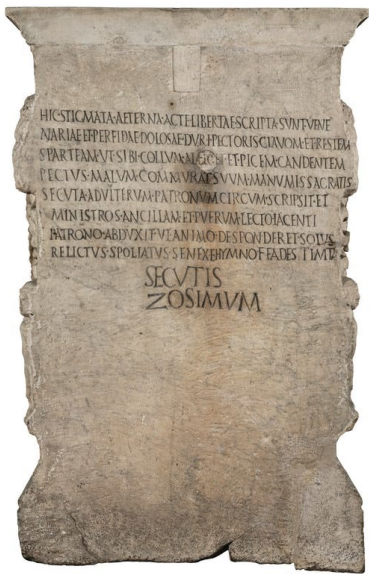 HIC·STIGMATA·AETERNA·ACTE·LIBERTAE·SCRIPTA·SVNT·VENE
NARIAE·ET·PERFIDAE·DOLOSAE·DVRI·PECTORIS·CLAVOM·ET·RESTEM
SPARTEAM·VT·SIBI·COLLVM·ALLIGET·ET·PICEM·CANDENTEM
PECTVS·MALVM·COMMVRAT·SVVM·MANVMISSA·GRATIS
SECVTA·ADVLTERVM·PATRONVM·CIRCVMSCRIPSIT·ET
MINISTROS·ANCILLAM·ET·PVERVM·LECTO·IACENTI
PATRONO·ABDVXIT·VT·ANIMO·DESPONDERET·SOLVS
RELICTVS·SPOLIATVS·SENEX·E·HYMNO·FFADES·TIMTA
SECVTIS
ZOSIMVM